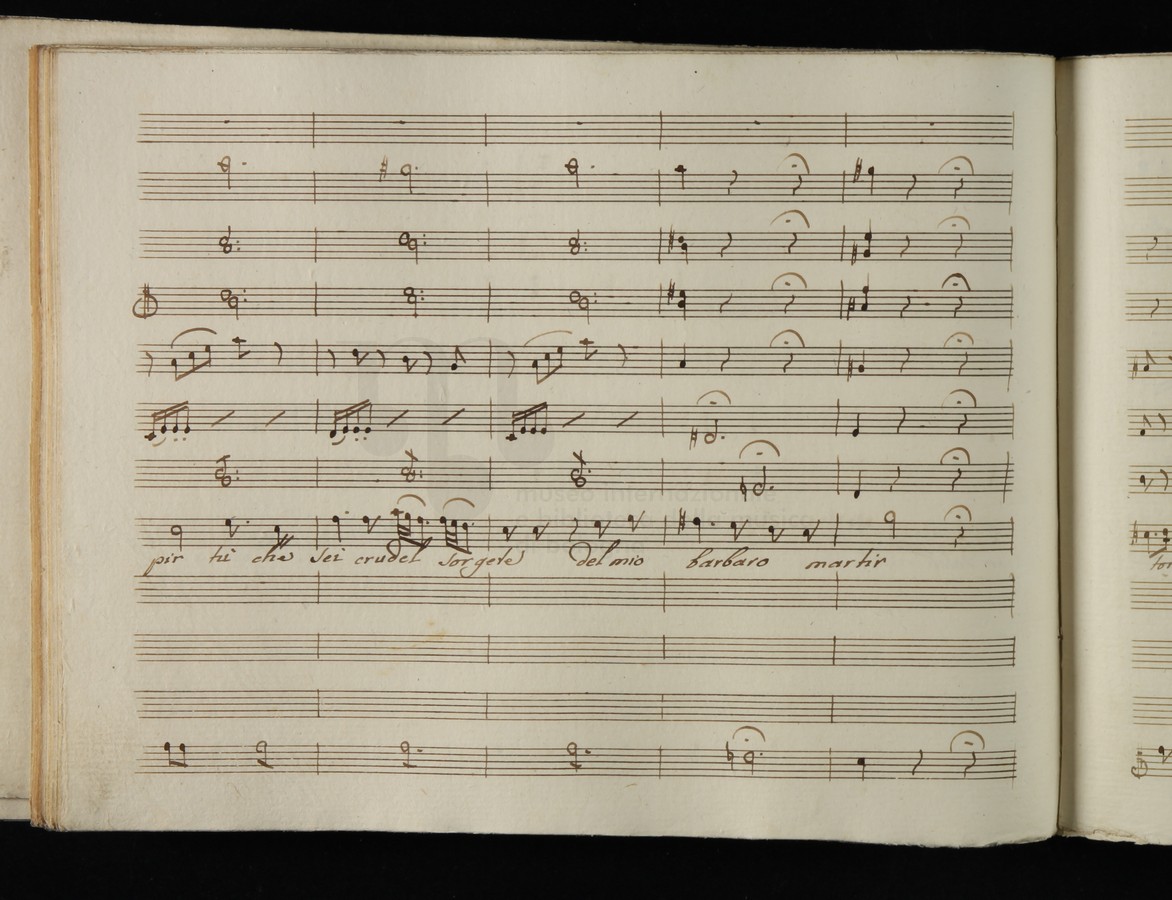 museo internazionale
e biblioteca della musica
di bologna
pir tù che sei crudel sorgete del mio barbaro martir